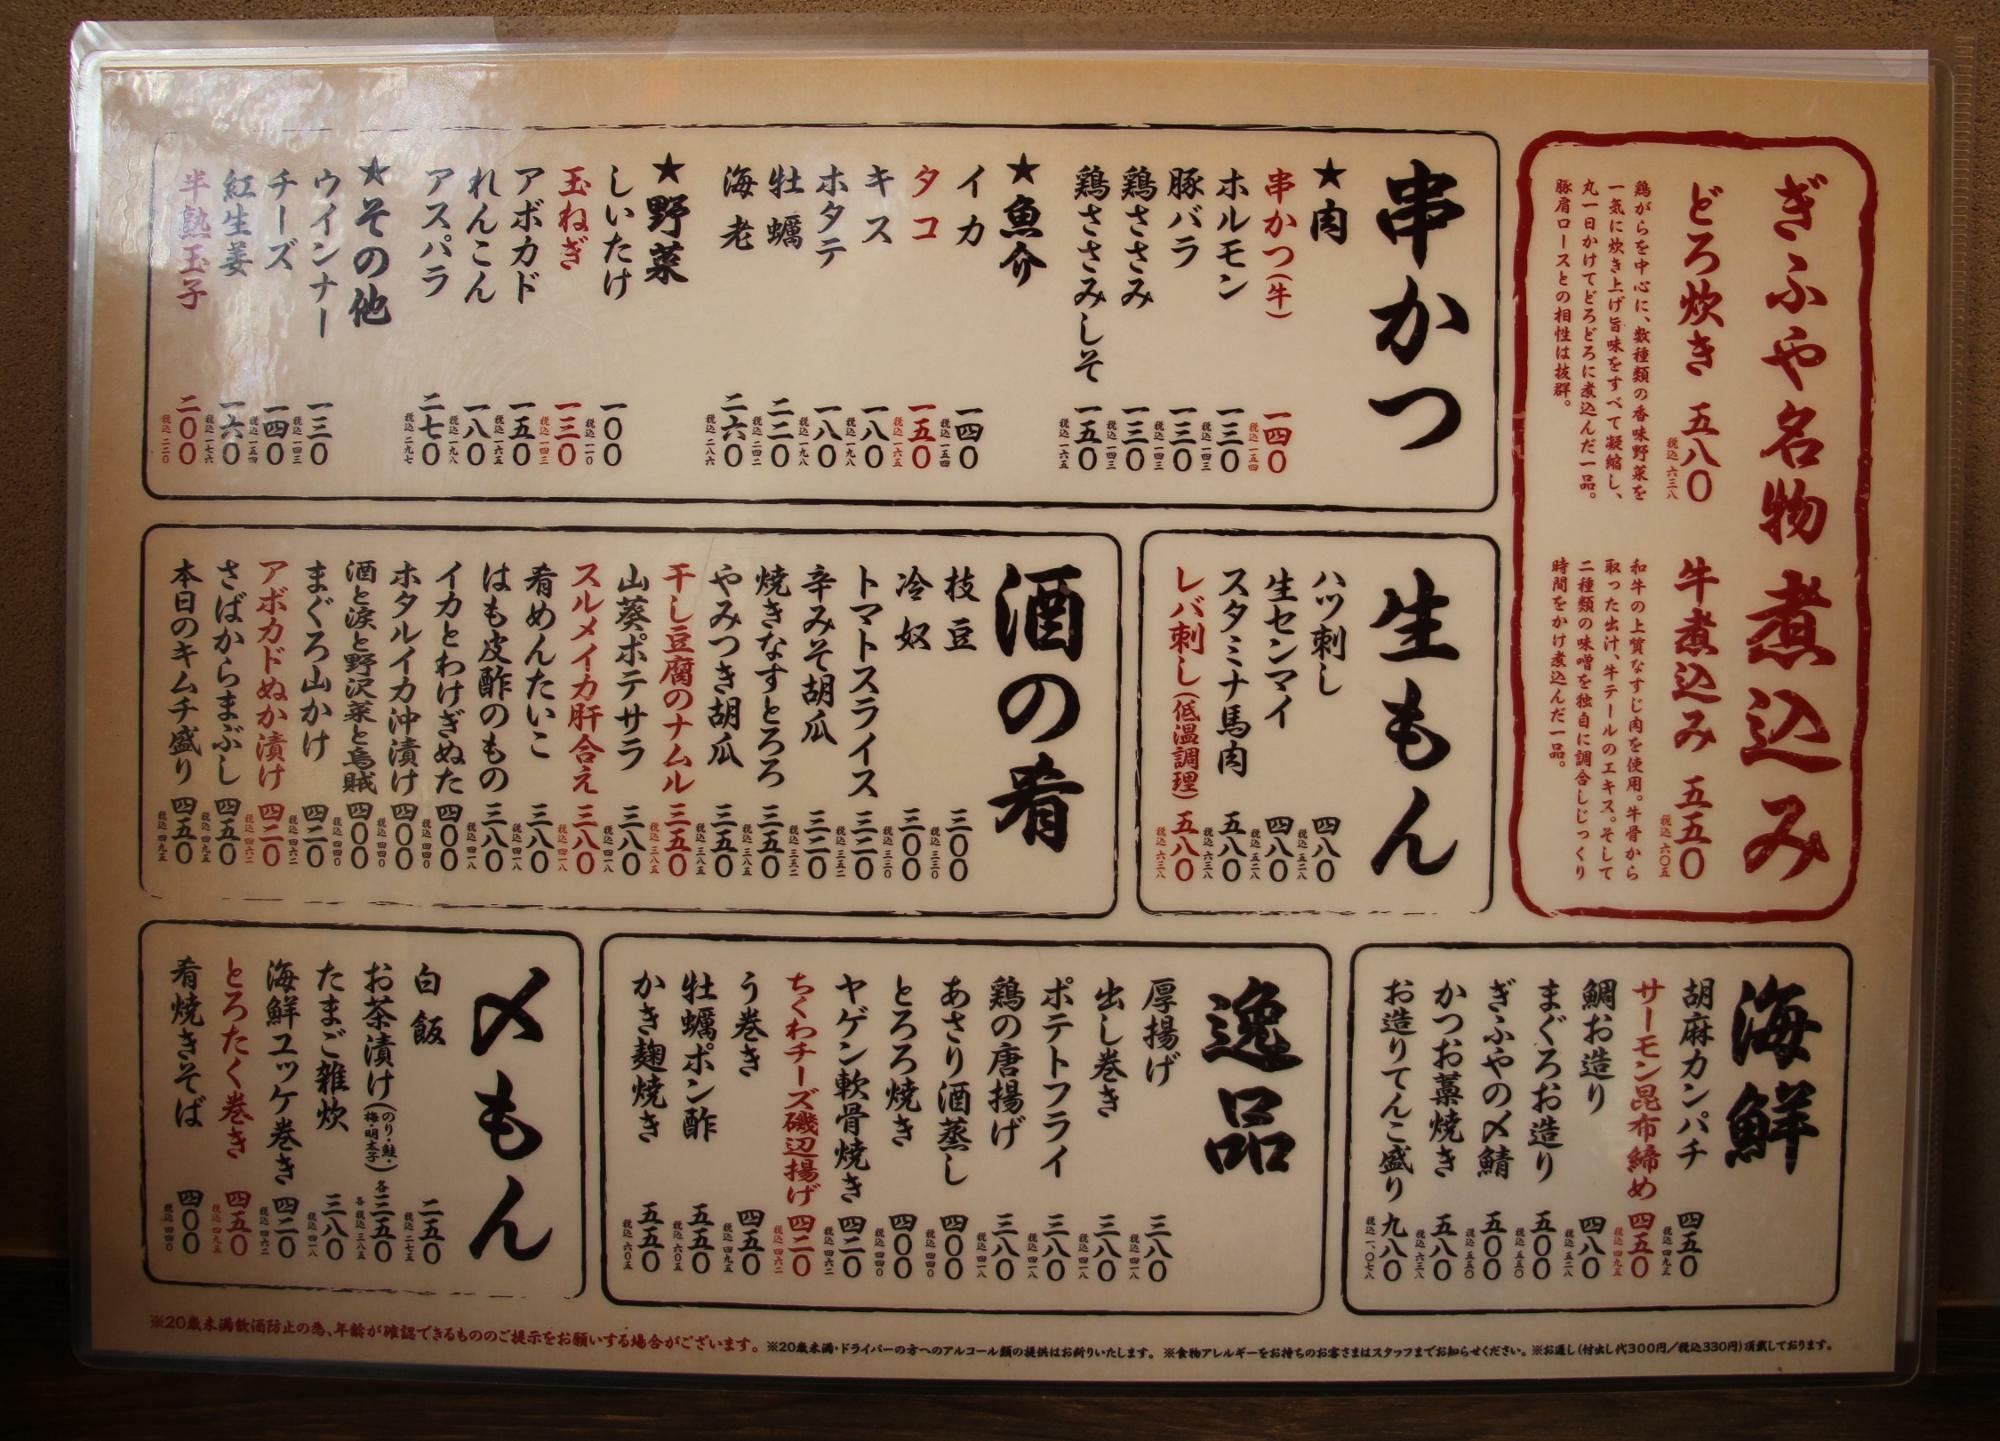 ぎふや名物煮込み
どろ炊き 五八〇
税込 六三八
鶏がらを中心に、数種類の香味野菜を
一気に炊き上げ旨味をすべて凝縮し、
丸一日かけてどろどろに煮込んだ一品。
豚肩ロースとの相性は抜群。
牛煮込み 五五〇
税込 六〇五
和牛の上質なすじ肉を使用。牛骨から
取った出汁、牛テールのエキス。そして
二種類の味噌を独自に調合しじっくり
時間をかけ煮込んだ一品。
串かつ
★肉
串かつ(牛) 一四〇
税込 一五四
ホルモン 一三〇
税込 一四三
豚バラ 一三〇
税込 一四三
鶏ささみ 一三〇
税込 一四三
鶏ささみしそ 一五〇
税込 一六五
★魚介
イカ 一四〇
税込 一五四
タコ 一五〇
税込 一六五
キス 一八〇
税込 一九八
ホタテ 一八〇
税込 一九八
牡蠣 二二〇
税込 二四二
海老 二六〇
税込 二八六
★野菜
しいたけ 一〇〇
税込 一一〇
玉ねぎ 一三〇
税込 一四三
アボカド 一五〇
税込 一六五
れんこん 一八〇
税込 一九八
アスパラ 二七〇
税込 二九七
★その他
ウインナー 一三〇
税込 一四三
チーズ 一四〇
税込 一五四
紅生姜 一六〇
税込 一七六
半熟玉子 二〇〇
税込 二二〇
生もん
ハツ刺し 四八〇
税込 五二八
生センマイ 四八〇
税込 五二八
スタミナ馬肉 五八〇
税込 六三八
レバ刺し(低温調理) 五八〇
税込 六三八
酒の肴
枝豆 三〇〇
税込 三三〇
冷奴 三〇〇
税込 三三〇
トマトスライス 三二〇
税込 三五二
辛みそ胡瓜 三二〇
税込 三五二
焼きなすとろろ 三五〇
税込 三八五
やみつき胡瓜 三五〇
税込 三八五
干し豆腐のナムル 三五〇
税込 三八五
山葵ポテサラ 三八〇
税込 四一八
スルメイカ肝合え 三八〇
税込 四一八
肴めんたいこ 三八〇
税込 四一八
はも皮酢のもの 三八〇
税込 四一八
イカとわけぎぬた 四〇〇
税込 四四〇
ホタルイカ沖漬け 四〇〇
税込 四四〇
酒と涙と野沢菜と烏賊 四〇〇
税込 四四〇
まぐろ山かけ 四二〇
税込 四六二
アボカドぬか漬け 四二〇
税込 四六二
さばからまぶし 四五〇
税込 四九五
本日のキムチ盛り 四五〇
税込 四九五
海鮮
胡麻カンパチ 四五〇
税込 四九五
サーモン昆布締め 四五〇
税込 四九五
鯛お造り 四八〇
税込 五二八
まぐろお造り 五〇〇
税込 五五〇
ぎふやの〆鯖 五〇〇
税込 五五〇
かつお藁焼き 五八〇
税込 六三八
お造りてんこ盛り 九八〇
税込 一、〇七八
逸品
厚揚げ 三八〇
税込 四一八
出し巻き 三八〇
税込 四一八
ポテトフライ 三八〇
税込 四一八
鶏の唐揚げ 三八〇
税込 四一八
あさり酒蒸し 四〇〇
税込 四四〇
とろろ焼き 四〇〇
税込 四四〇
ヤゲン軟骨焼き 四二〇
税込 四六二
ちくわチーズ磯辺揚げ 四二〇
税込 四六二
う巻き 四五〇
税込 四九五
牡蠣ポン酢 五五〇
税込 六〇五
かき麹焼き 五五〇
税込 六〇五
〆もん
白飯 二五〇
税込 二七五
お茶漬け(のり・鮭・梅・明太子) 各三五〇
各税込 三八五
たまご雑炊 三八〇
税込 四一八
海鮮ユッケ巻き 四二〇
税込 四六二
とろたく巻き 四五〇
税込 四九五
肴焼きそば 四〇〇
税込 四四〇
※20歳未満飲酒防止の為、年齢が確認できるもののご提示をお願いする場合がございます。 ※20歳未満・ドライバーの方へのアルコール類の提供はお断りいたします。 ※食物アレルギーをお持ちのお客さまはスタッフまでお知らせください。※お通し(付出し代300円／税込330円)頂戴しております。